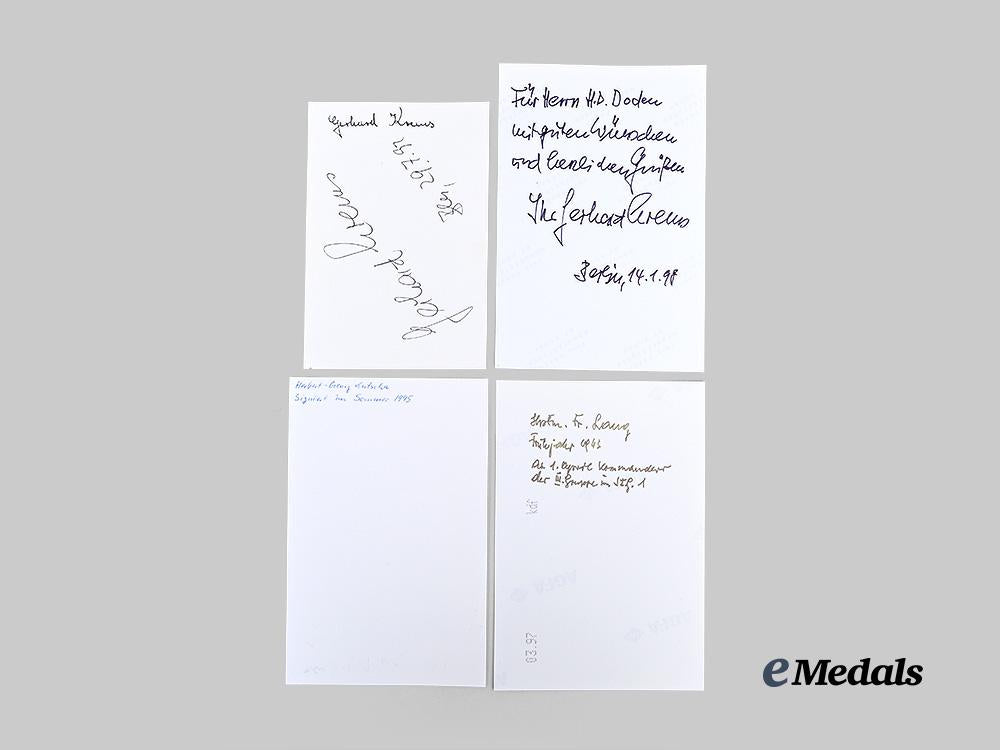 Gerhard Krems
Bln, 29.7.92
Gerhard Krems
Für Herrn H.D. Doden
mit guten Wünschen
und herzlichen Grüßen
Ihr Gerhard Krems
Berlin, 14.1.98
Herbert-Georg
Signiert im Sommer 1995
Hptm. Fr. Lang
Frühjahr 1943
Ab 1. April Kommandeur
der III. Gruppe im StG. 1
kdf
AGFA
AGFA
03.97
eMedals